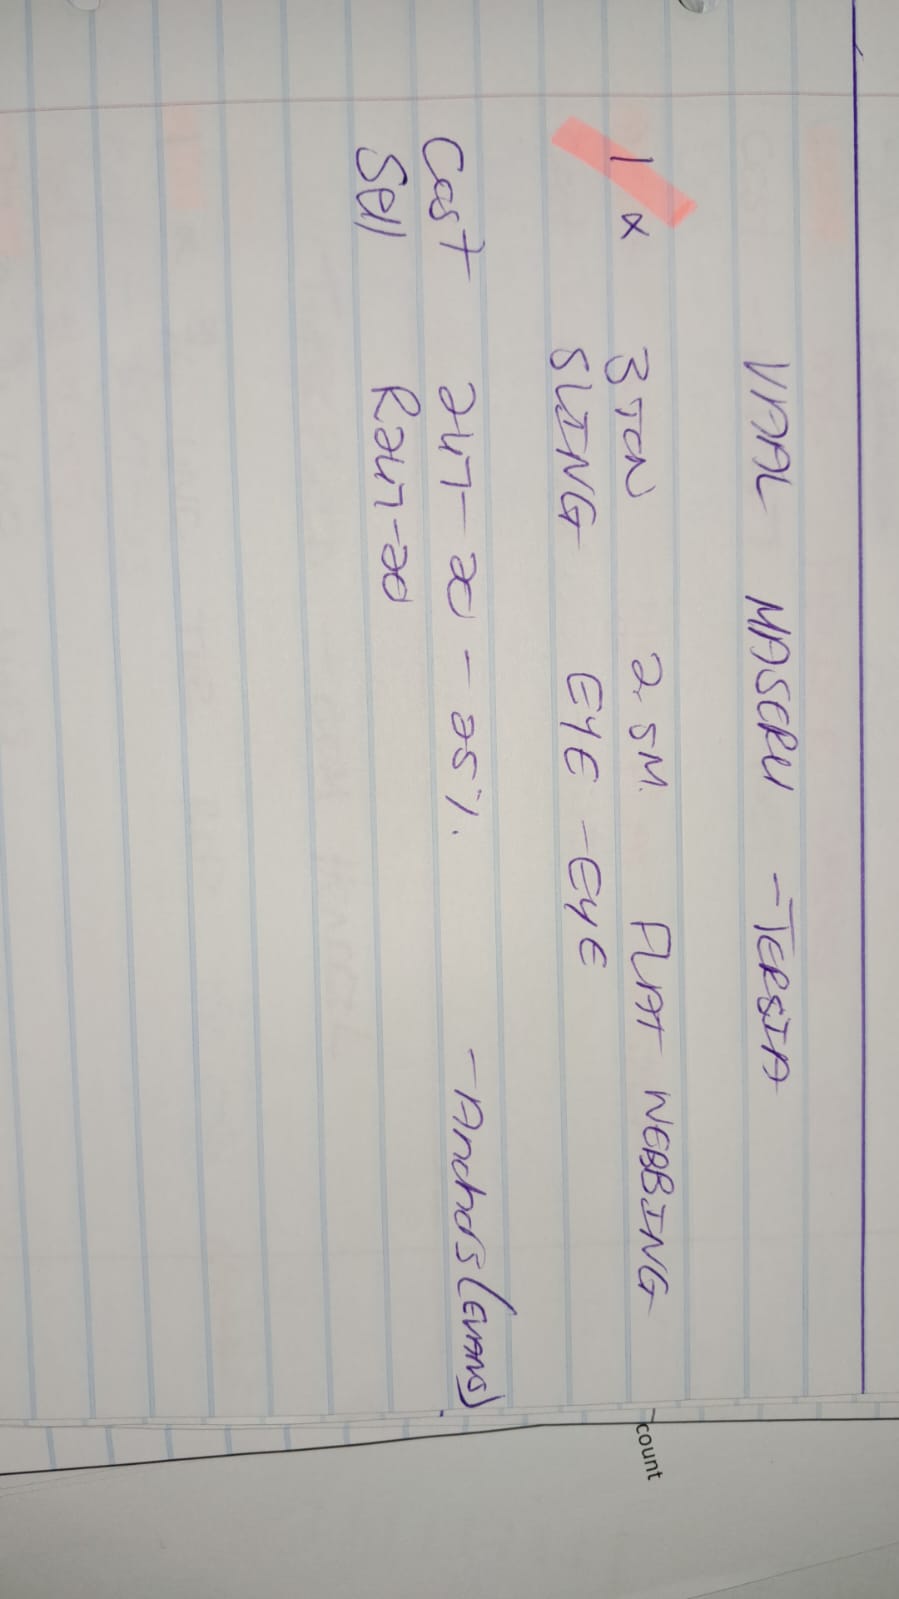 VAAL MASERU - TERSIA
1 x 3 TON 2.5M. FLAT WEBBING
SLING EYE - EYE
Cost 247-20 - 25%. - Anchors (EVANS)
Sell R247-20
count